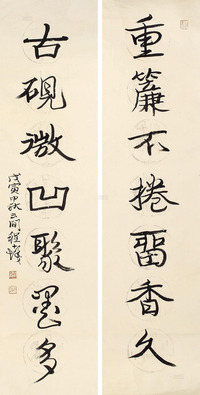 重簾不捲留香久
古硯微凹聚墨多
戊寅中秋云間程十髮